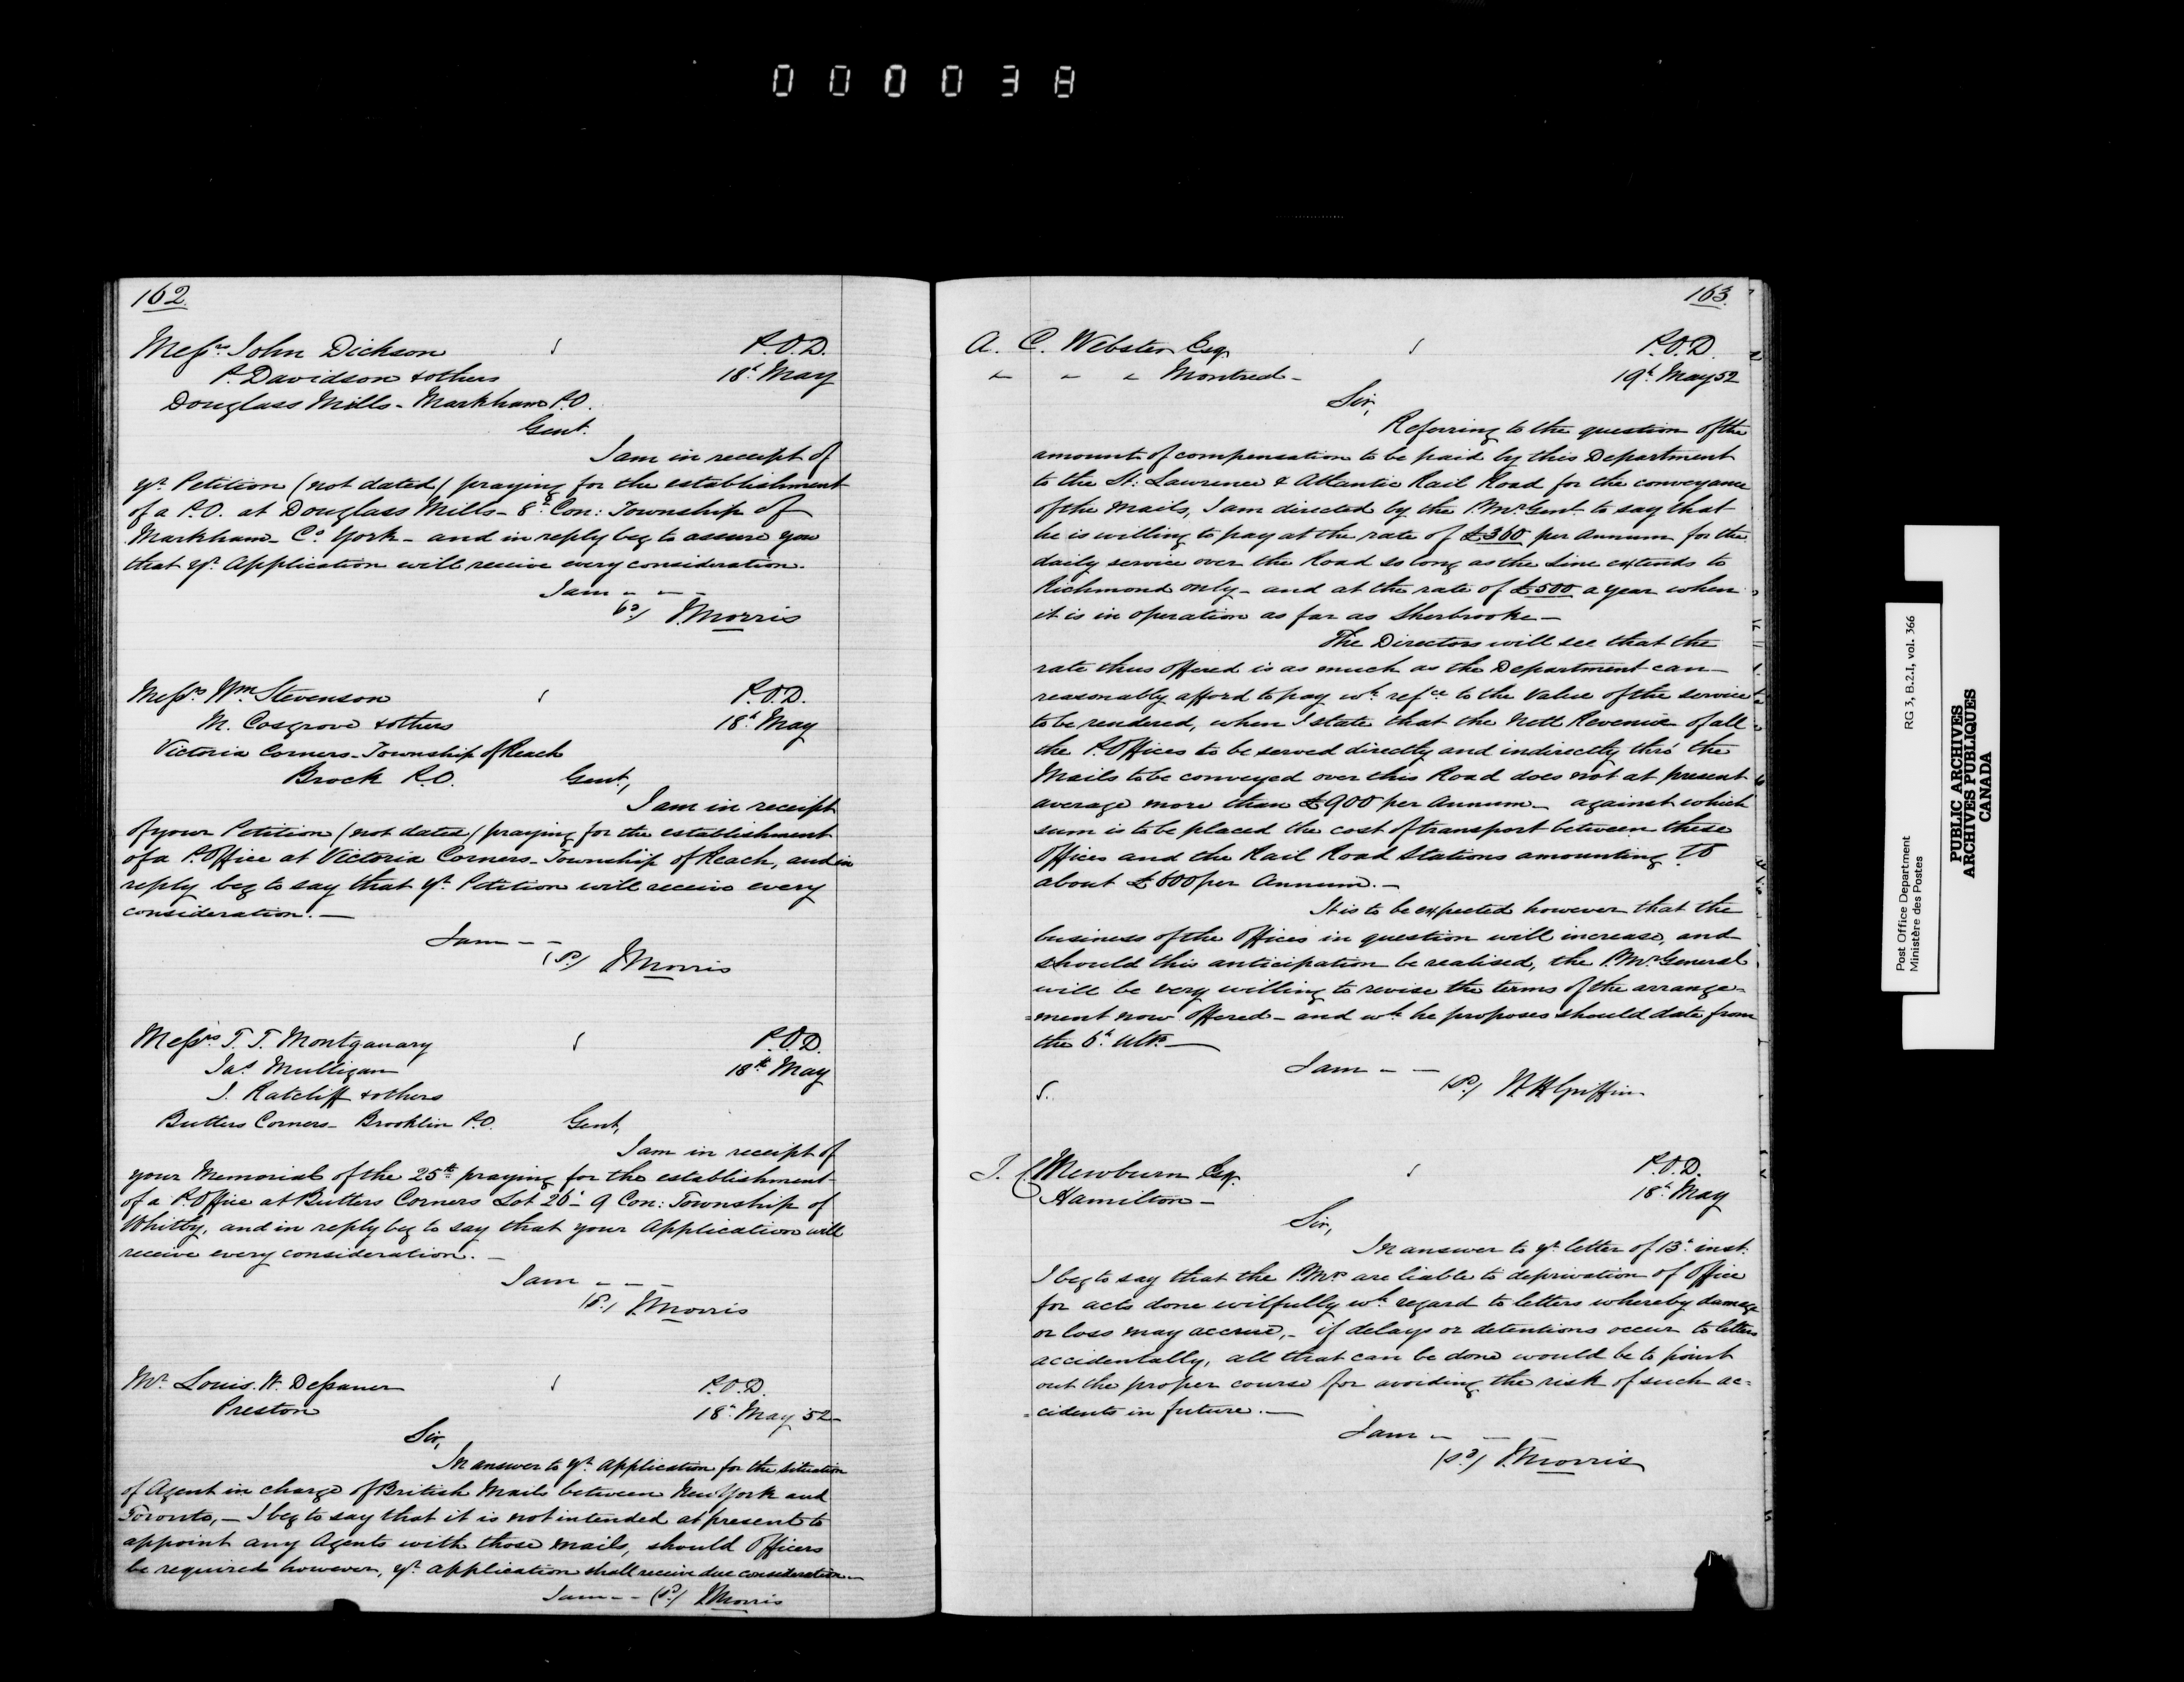 000038
162
Messrs John Dickson P.O.D.
P. Davidson & others 18th May
Douglass Mills - Markham P.O.
Gent.
I am in receipt of
yr Petition (not dated) praying for the establishment
of a P.O. at Douglass Mills - 8th Con: Township of
Markham - Co York - and in reply beg to assure you
that yr Application will receive every consideration.
I am - - -
(sd) J. Morris
Messrs Wm Stevenson P.O.D.
M. Cosgrove & others 18th May
Victoria Corners - Township of Reach
Brock P.O. Gent,
I am in receipt
of your Petition (not dated) praying for the establishment
of a P. Office at Victoria Corners - Township of Reach, and in
reply beg to say that yr Petition will receive every
consideration. -
I am - -
(sd) J. Morris
Messrs T. T. Montganary P.O.D.
Jas Mulligan 18th May
J. Ratcliff & others
Butters Corners - Brooklin P.O. Gent,
I am in receipt of
your Memorial of the 25th praying for the establishment
of a P. Office at Butters Corners Lot 26 - 9 Con: Township of
Whitby, and in reply beg to say that your Application will
receive every consideration. -
I am - - -
(sd) J. Morris
Mr Louis. W. Dessauer P.O.D.
Preston 18th May 52 -
Sir,
In answer to yr Application for the situation
of Agent in charge of British Mails between New York and
Toronto, - I beg to say that it is not intended at present to
appoint any Agents with those mails, should Officers
be required however, yr application shall receive due consideration -
I am - - (sd) J. Morris
163
A. C. Webster Esq. P.O.D.
" " " Montreal - 19th May 52
Sir,
Referring to the question of the
amount of compensation to be paid by this Department
to the St: Lawrence & Atlantic Rail Road for the conveyance
of the Mails, I am directed by the P. Mr Genl to say that
he is willing to pay at the rate of £360 per Annum for the
daily service over the Road so long as the Line extends to
Richmond only - and at the rate of £500 a year when
it is in operation as far as Sherbrooke -
The Directors will see that the
rate thus offered is as much as the Department can
reasonably afford to pay wh refce to the Value of the service
to be rendered, when I state that the Nett Revenue of all
the P. Offices to be served directly and indirectly thro' the
Mails to be conveyed over this Road does not at present
average more than £900 per Annum - against which
sum is to be placed the cost of transport between these
Offices and the Rail Road Stations amounting to
about £600 per Annum. -
It is to be expected however that the
business of the Offices in question will increase, and
should this anticipation be realised, the P. Mr General
will be very willing to revise the terms of the arrange-
=ment now offered - and wh he proposes should date from
the 6th Ulto -
I am - -
(sd) W. H. Griffin
J. C. Mewburn Esq. P.O.D.
Hamilton - 18th May
Sir,
In answer to yr letter of 13th inst.
I beg to say that the P.Mrs are liable to deprivation of Office
for acts done wilfully wh regard to letters whereby damage
or loss may accrue, - if delays or detentions occur to letters
accidentally, all that can be done would be to point
out the proper course for avoiding the risk of such ac=
=cidents in future. -
I am - -
(sd) J. Morris
Post Office Department RG 3, B.2.I, vol. 366
Ministère des Postes
PUBLIC ARCHIVES
ARCHIVES PUBLIQUES
CANADA